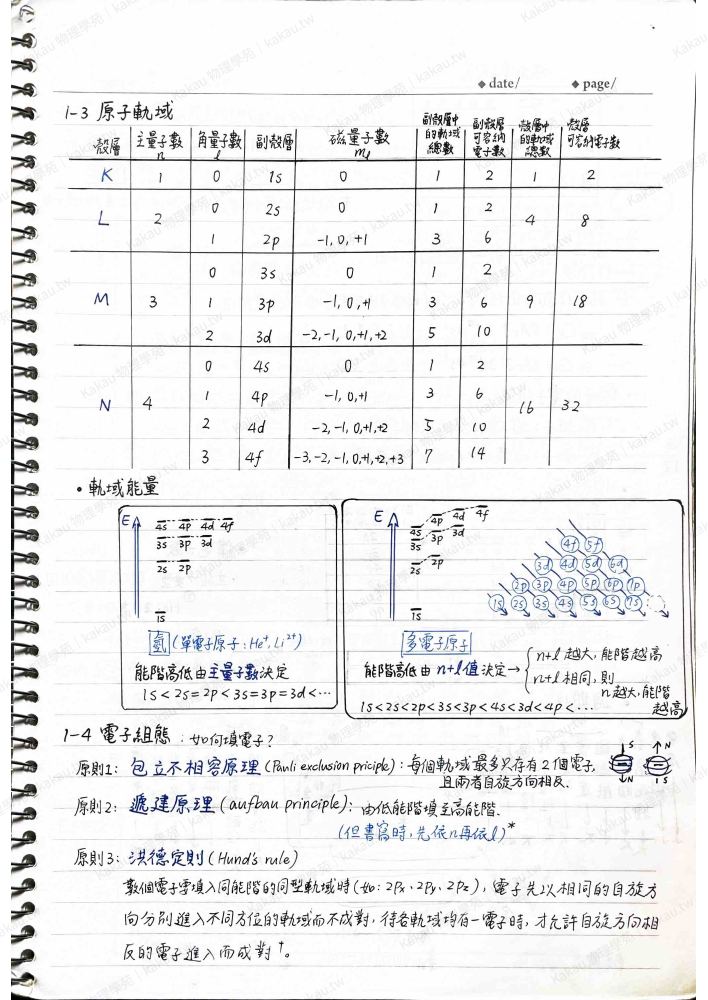 ◆ date/ ◆ page/
1-3 原子軌域
殼層 主量子數 n 角量子數 l 副殼層 磁量子數 ml 副殼層中的軌域總數 副殼層可容納電子數 殼層中的軌域總數 殼層可容納電子數
K 1 0 1s 0 1 2 1 2
L 2 0 2s 0 1 2 4 8
1 2p -1, 0, +1 3 6
M 3 0 3s 0 1 2 9 18
1 3p -1, 0, +1 3 6
2 3d -2, -1, 0, +1, +2 5 10
N 4 0 4s 0 1 2 16 32
1 4p -1, 0, +1 3 6
2 4d -2, -1, 0, +1, +2 5 10
3 4f -3, -2, -1, 0, +1, +2, +3 7 14
• 軌域能量
E
4s 4p 4d 4f
3s 3p 3d
2s 2p
1s
氫 (單電子原子: He⁺, Li²⁺)
能階高低由主量子數決定
1s < 2s = 2p < 3s = 3p = 3d < ⋯
E
4s 4p 4d 4f
3s 3p 3d
2s 2p
1s
4f 5f
3d 4d 5d 6d
2p 3p 4p 5p 6p 7p
1s 2s 3s 4s 5s 6s 7s
多電子原子
能階高低由 n+l值 決定 →
n+l 越大, 能階越高
n+l 相同, 則
n越大, 能階越高
1s < 2s < 2p < 3s < 3p < 4s < 3d < 4p < ⋯
1-4 電子組態 : 如何填電子?
原則1: 包立不相容原理 (Pauli exclusion priciple): 每個軌域最多只存有2個電子,
且兩者自旋方向相反.
↓S ↑N
↓N ↑S
原則2: 遞建原理 (aufbau principle): 由低能階填至高能階.
(但書寫時, 先依n再依l)*
原則3: 洪德定則 (Hund's rule)
數個電子要填入同能階的同型軌域時 (如: 2Px、2Py、2Pz), 電子先以相同的自旋方
向分別進入不同方位的軌域而不成對, 待各軌域均有一電子時, 才允許自旋方向相
反的電子進入而成對†。
Kakau 物理學苑 | kakau.tw